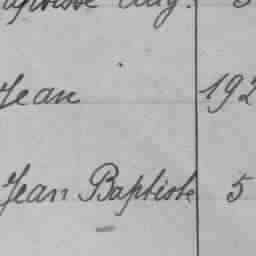 Aug. 5
Jean 192
Jean Baptiste 5